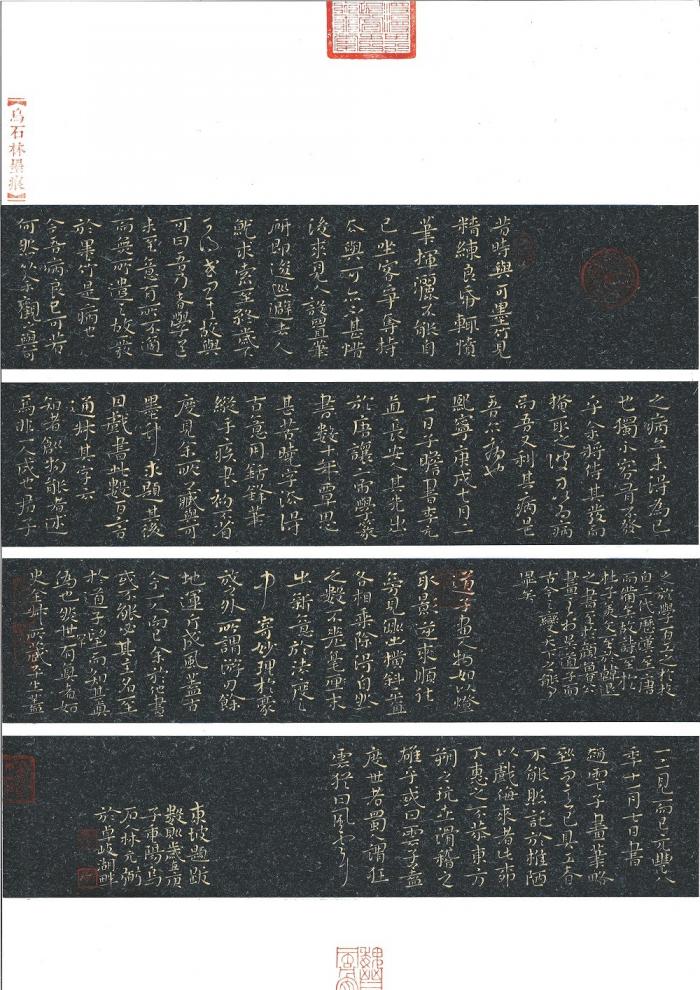 【烏石林墨痕】
昔時與可墨竹見
精練良紙輒憤
筆揮灑不能自
已坐客爭奪持
去與可亦不甚惜
後來見人設置筆
研即逡巡避去人
就求索至終歲不
可得或問其故與
可曰吾乃者學道
未至意有所不適
而無所遣之故發
於墨竹是病也
今吾病良已可若
何然以余觀之與可
之病亦未得為已
也獨不容有不發
乎余將伺其發而
掩取之彼方以為病
而吾又利其病是
吾亦病也
熙寧庚戌七月二
十一日子瞻書李元
直長安人其先出
於唐讓帝而學篆
書數十年覃思
甚苦曉字法得
古意用銛鋒筆
縱手疾書初不省
度見余所藏與可
墨竹求題其後
因戲書此數百言
通叔其字云
知者創物能者述
焉非一人成也君子
之於學百工之於技
自三代歷漢至唐
而備矣故詩至於
杜子美文至於韓退
之書至於顏魯公
畫至於吳道子而
古今之變天下之能事
畢矣
道子畫人物如以燈
取影逆來順往
旁見側出橫斜平直
各相乘除得自然
之數不差毫末
出新意於法度之
中寄妙理於豪
放之外所謂游刃餘
地運斤成風蓋古
今一人而已余於他畫
或不能必其主名至
於道子望而知其真
偽也然世有真者如
史全叔所藏平生蓋
一二見而已元豐八
年十一月七日書
趙雲子畫筆略
到而意已具工者
不能然託於椎陋
以戲侮來者此柳下
惠之不恭東方
朔之玩世滑稽之
雄乎或曰雲子蓋
度世者蜀謂狂
雲猶曰風云耳
東坡題跋
數則歲
子重陽烏
石人林元弼
於卓岐湖畔